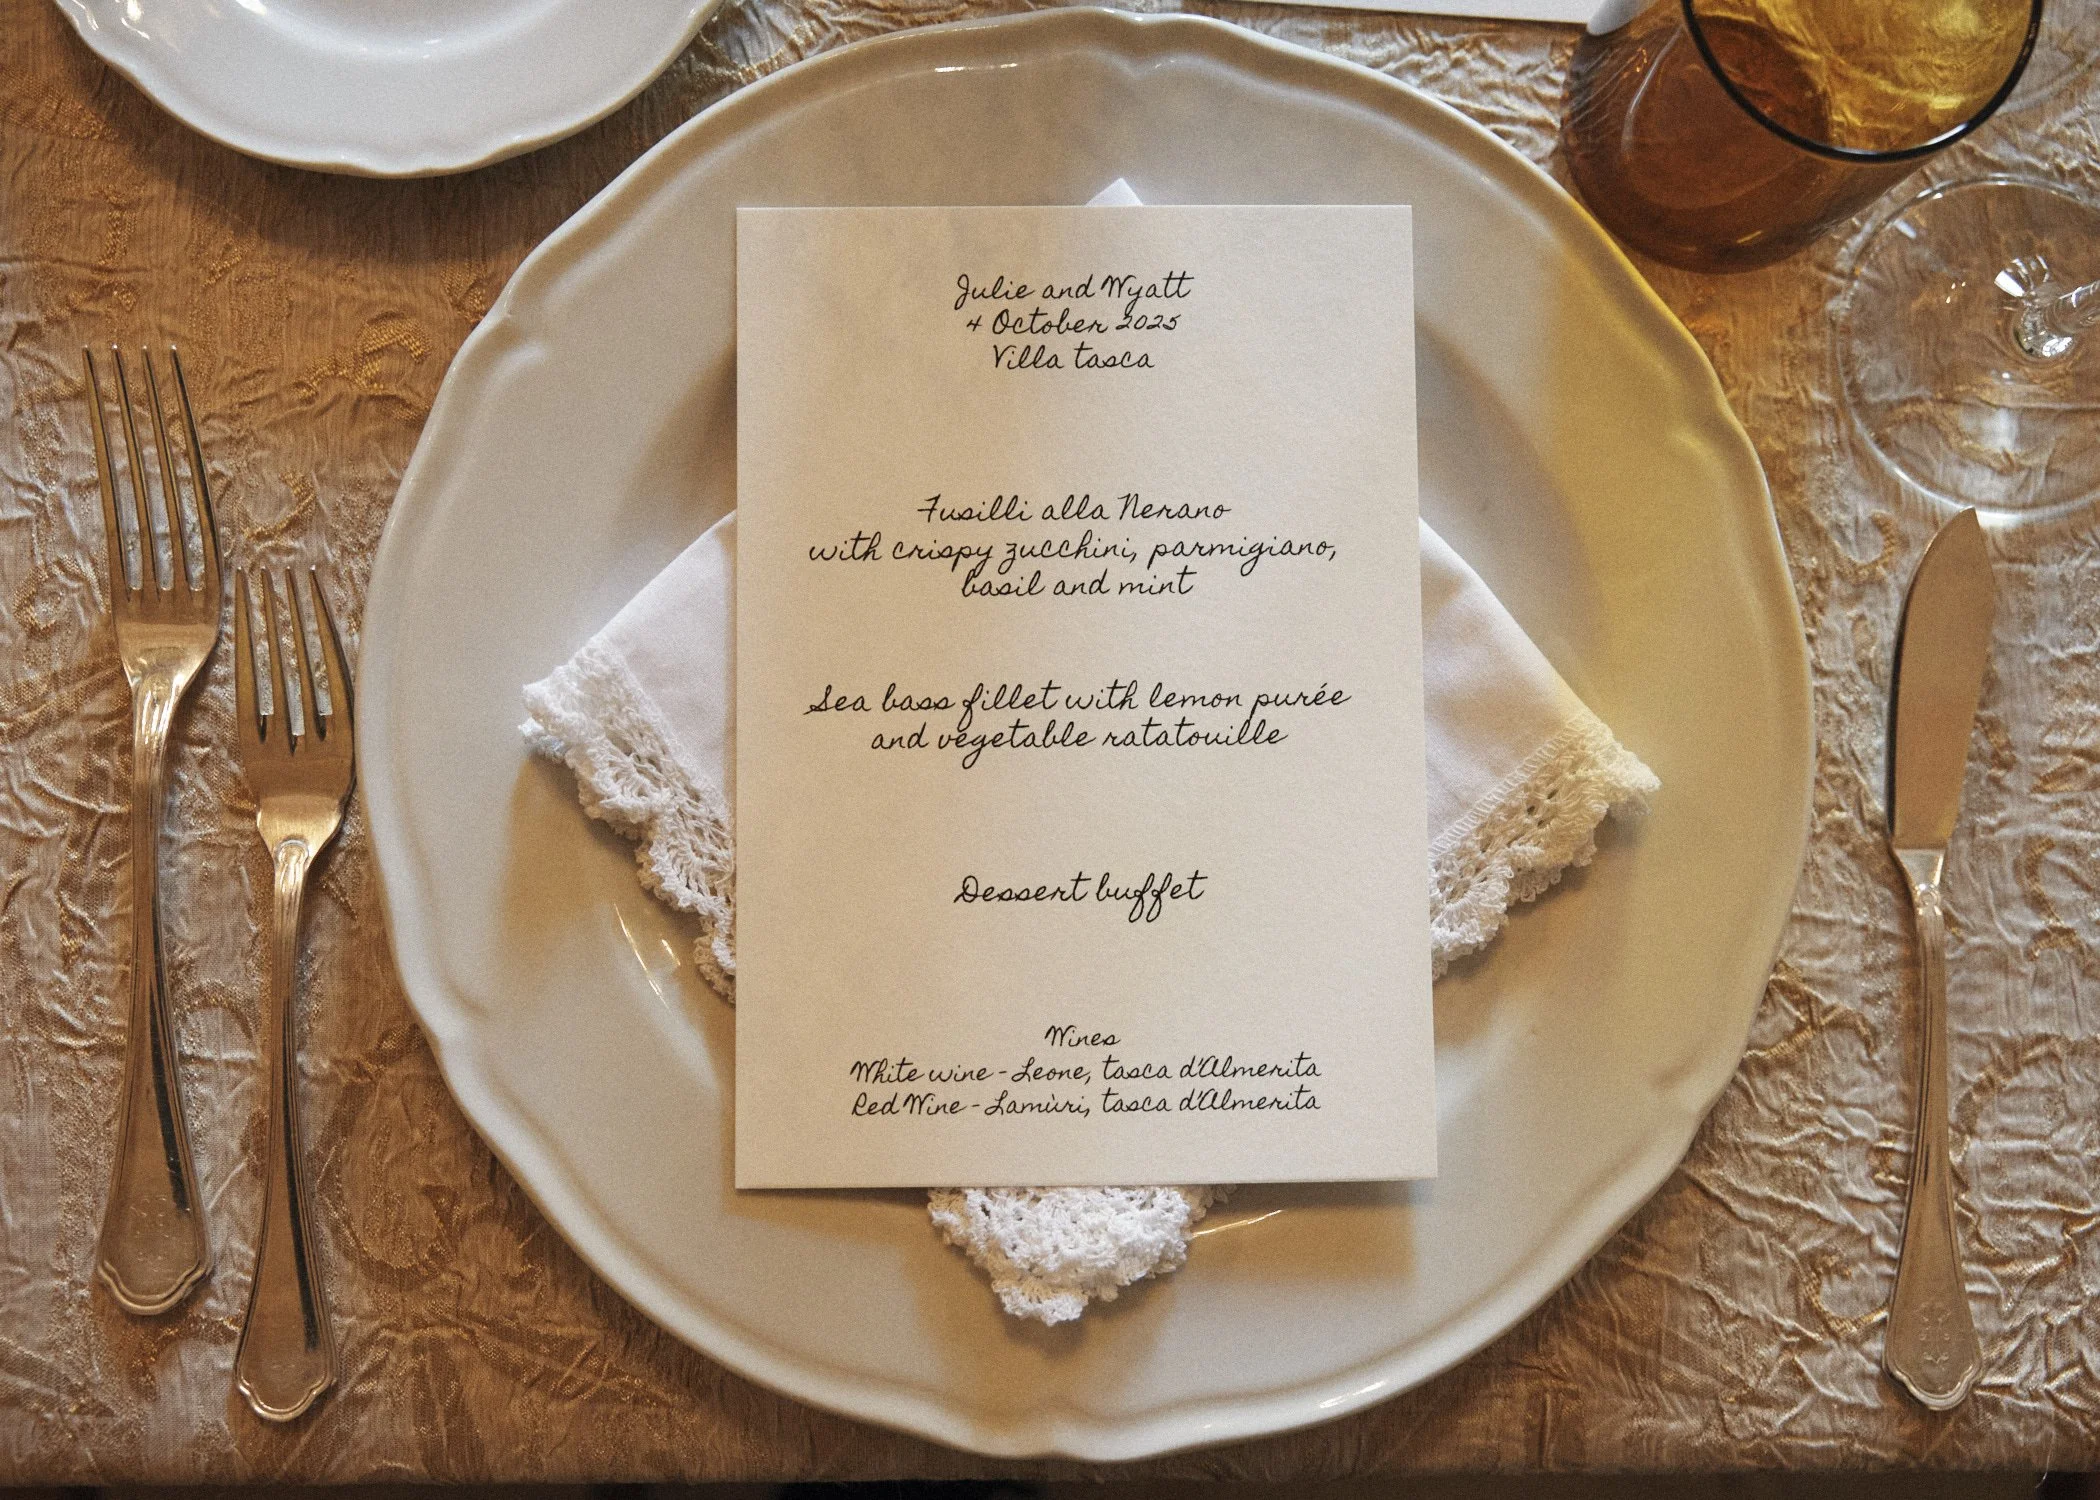 Julie and Wyatt
4 October 2025
Villa tasca
Fusilli alla Nerano
with crispy zucchini, parmigiano,
basil and mint
Sea bass fillet with lemon purée
and vegetable ratatouille
Dessert buffet
Wines
White wine - Leone, tasca d'Almerita
Red Wine - Lamùri, tasca d'Almerita